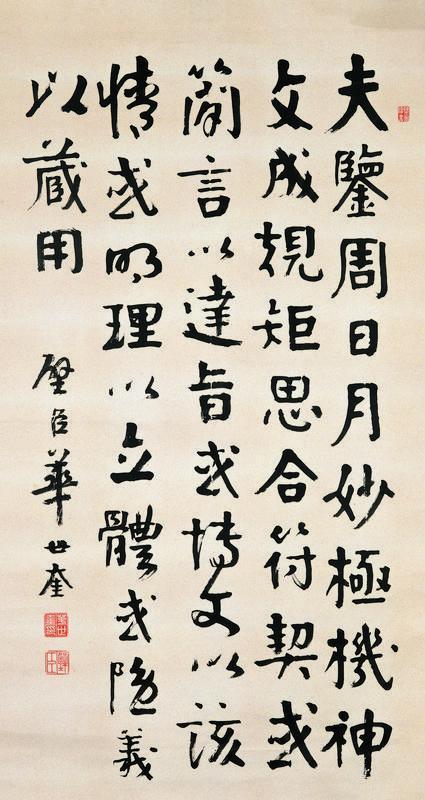 夫鑒周日月妙極機神
文成規矩思合符契或
簡言以達旨或博文以該
情或明理以立體或隱義
以藏用
璧臣華世奎